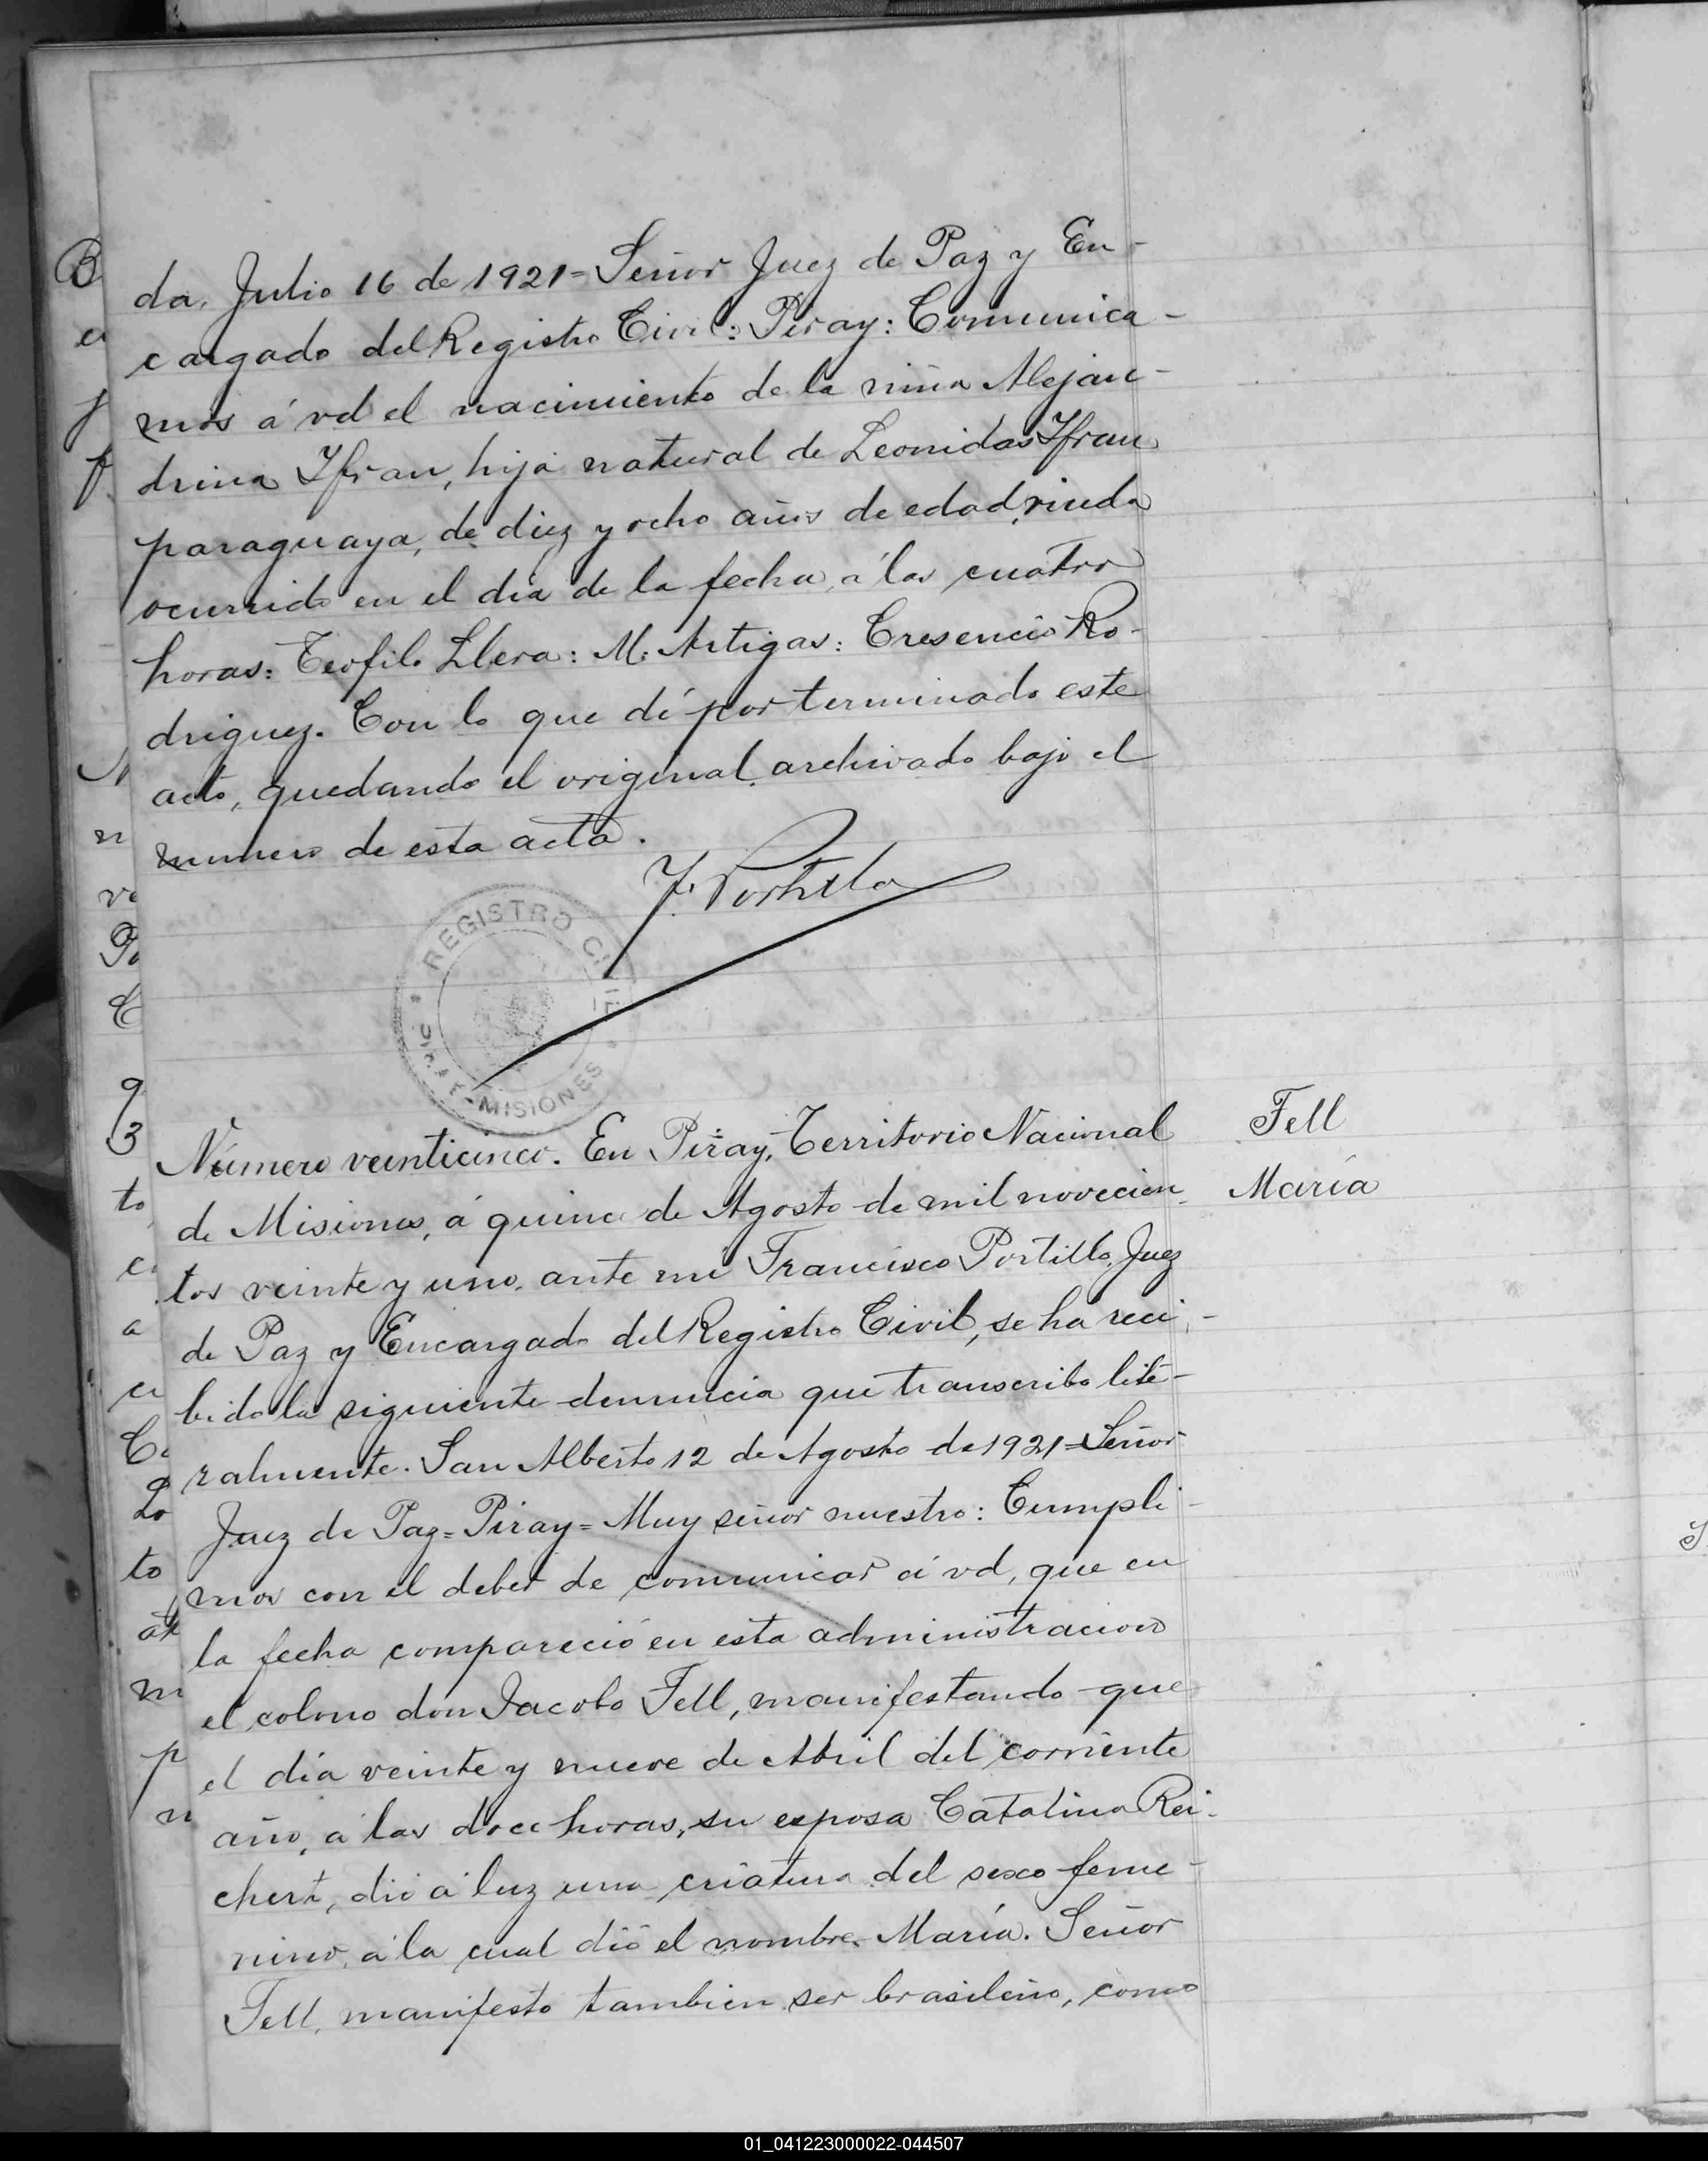 da, Julio 16 de 1921=Señor Juez de Paz y En-
cargado del Registro Civil: Piray: Comunica-
mos á vd el nacimiento de la niña Alejan-
drina Yfran, hija natural de Leonidas Yfran
paraguaya, de diez y ocho años de edad, viuda
ocurrido en el dia de la fecha, á las cuatro
horas: Teofilo Llera: M. Artigas: Cresencio Ro-
driguez. Con lo que dí por terminado este
acto, quedando el original archivado bajo el
numero de esta acta.
F. Portillo
REGISTRO CIVIL
MISIONES
Número veinticinco. En Piray, Territorio Nacional
de Misiones, á quince de Agosto de mil novecien-
tos veinte y uno, ante mi Francisco Portillo, Juez
de Paz y Encargado del Registro Civil, se ha reci-
bido la siguiente denuncia que transcribo lite-
ralmente. San Alberto 12 de Agosto de 1921=Señor
Juez de Paz=Piray=Muy señor nuestro: Cumpli-
mos con el deber de comunicar á vd, que en
la fecha compareció en esta administracion
el colono don Jacobo Fell, manifestando que
el día veinte y nueve de Abril del corriente
año, á las doce horas, su esposa Catalina Rei-
chert, dió á luz una criatura del sexo feme-
nino, á la cual dió el nombre María. Señor
Fell, manifesto tambien ser brasileño, como
Fell
María
01_041223000022-044507